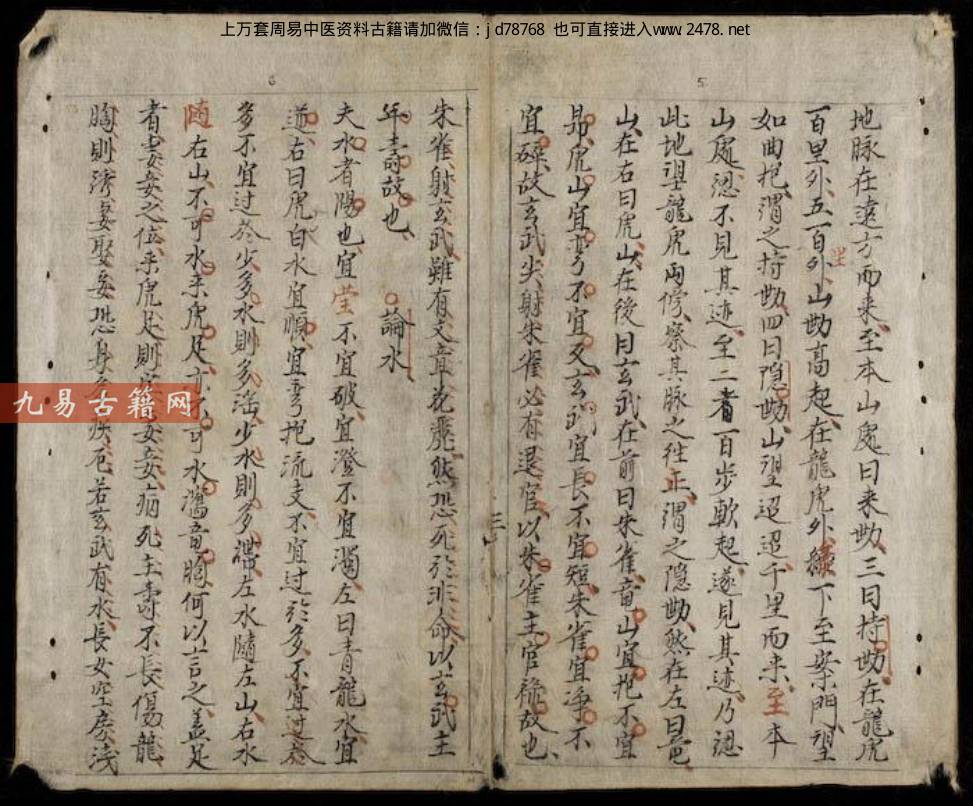 上万套周易中医资料古籍请加微信：jd78768 也可直接进入www.2478.net
5
地脉在遠方而来至本山處曰来㔟三曰持㔟在龍虎
百里外五百外山㔟高起在龍虎外纏下至案門望
如曲抱謂之持㔟四曰隐㔟山望迢迢千里而来至本
山處忽不見其迹至二者百步軟起遂見其迹乃認
此地望龍虎两傍察其脉之往正謂之隐㔟然在左曰竜
山在右曰虎山在後曰玄武在前曰朱雀竜山宜抱不宜
昻虎山宜弯不宜叉玄武宜長不宜短朱雀宜凈不
宜碌故玄武尖射朱雀必有退官以朱雀主官祿故也
三
6
朱雀射玄武雖有文章花麗然恐死於非命以玄武主
年壽故也
論水
夫水者陽也宜莹不宜破宜澄不宜濁左曰青龍水宜
遶右曰虎白水宜順宜弯抱流支不宜過於多不宜過於
多不宜過於少多水則多滛少水則多滯左水隨左山右水
随右山不可水来虎足亦不可水㵼竜胸何以言之盖足
者妻妾之位来虎足則妻妾病死主壽不長傷龍
胸則淂妻娶妾恐身多疾厄若玄武有水長女空房淺
九易古籍网